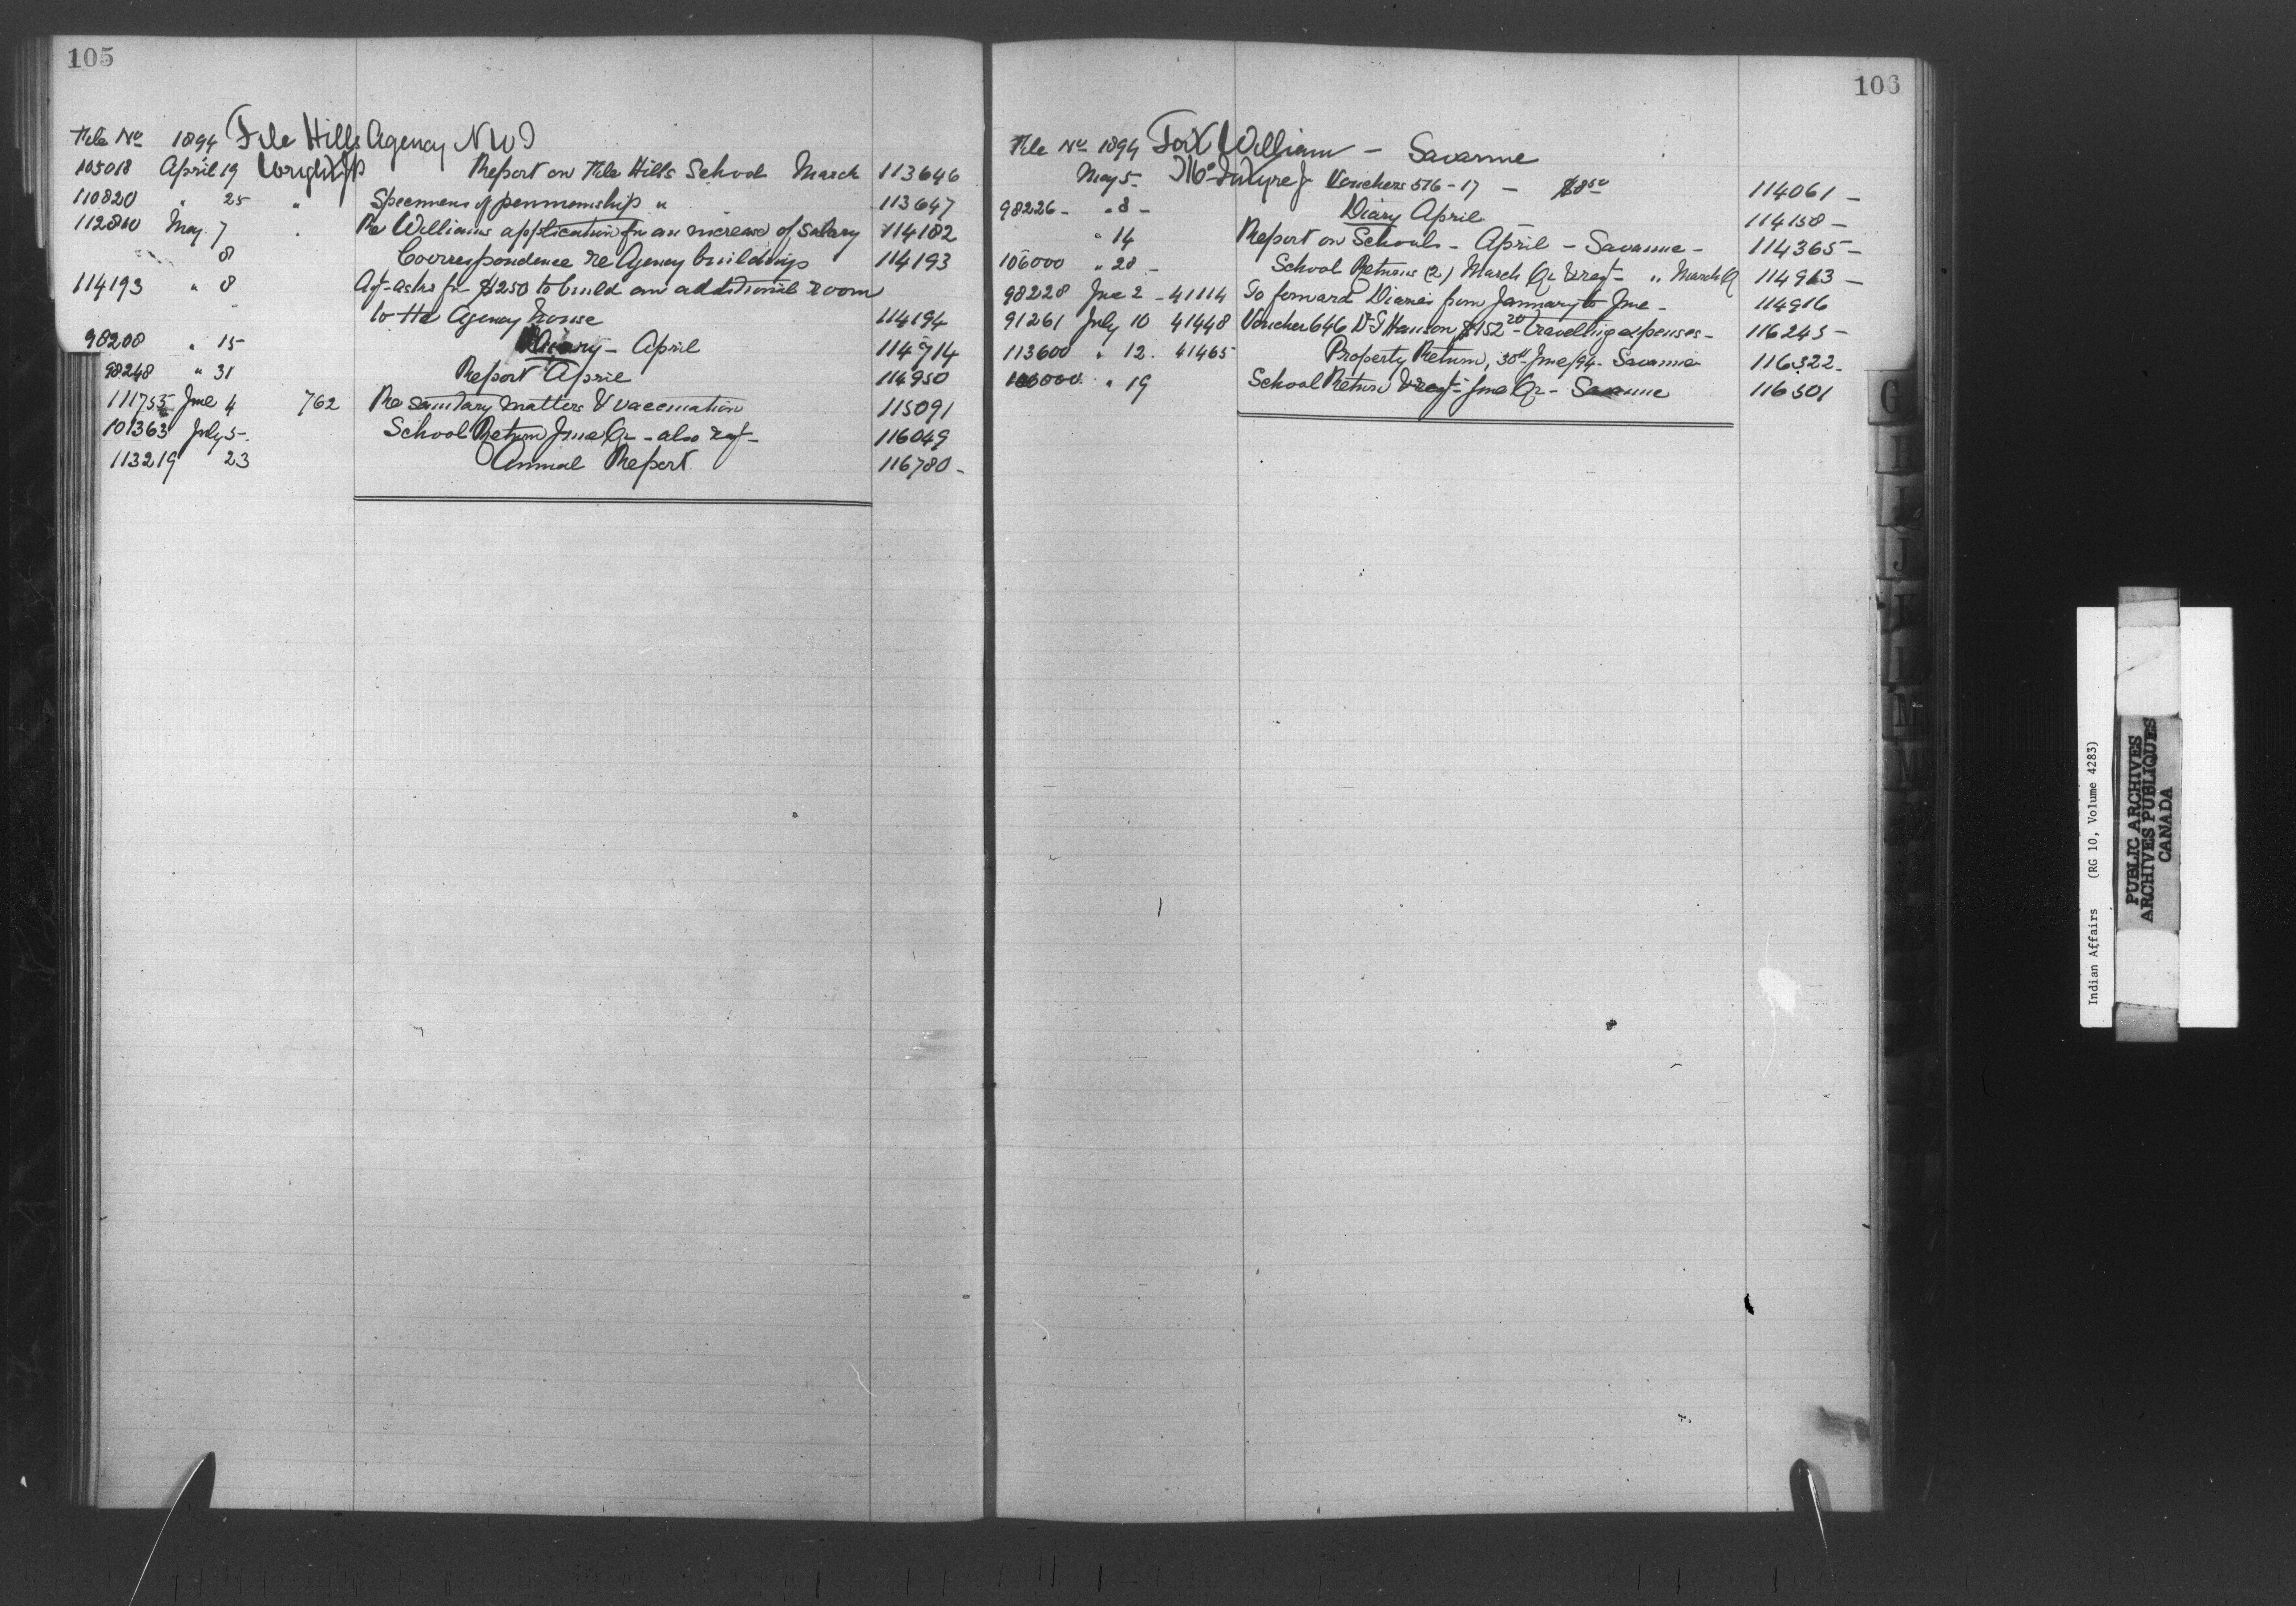 105
File No 1894 File Hills Agency NWT
105018 April 19 Wright JP Report on File Hills School March 113646
110820 " 25 " Specimens of penmanship " 113647
112800 May 7 " Re Williams application for an increase of salary 114182
" 8 Coorrespondence re Agency buildings 114193
114193 " 8 Agt asks for $250 to build an additional room
to the Agency house 114194
98208 " 15 Diary - April 114714
98248 " 31 Report April 114950
111755 June 4 762 Re sanitary matters & vaccination 115091
101363 July 5 - School Return June Qr - also reqt - 116049
113219 23 Annual Report 116780 -
106
File No 1894 Fort William - Savanne
May 5 - McIntyre J Vouchers 516-17 - $8 50 114061 -
98226 - " 8 - Diary April - 114158 -
" 14 Report on Schools - April - Savanne - 114365 -
106000 " 28 - School Returns (2) March Qr & reqt - " March Q 114913 -
98228 June 2 - 41114 To forward Diaries from January to June - 114916
91261 July 10 41448 Voucher 646 Dr S Hanson $152 20 - travelling expenses - 116245 -
113600 " 12. 41465 Property Return, 30th June/94 - Savanne 116322 -
106000 " 19 School Return & reqt - June Qr - Savanne 116501
G
I
I
J
K
L
M
M
Indian Affairs (RG 10, Volume 4283)
PUBLIC ARCHIVES
ARCHIVES PUBLIQUES
CANADA